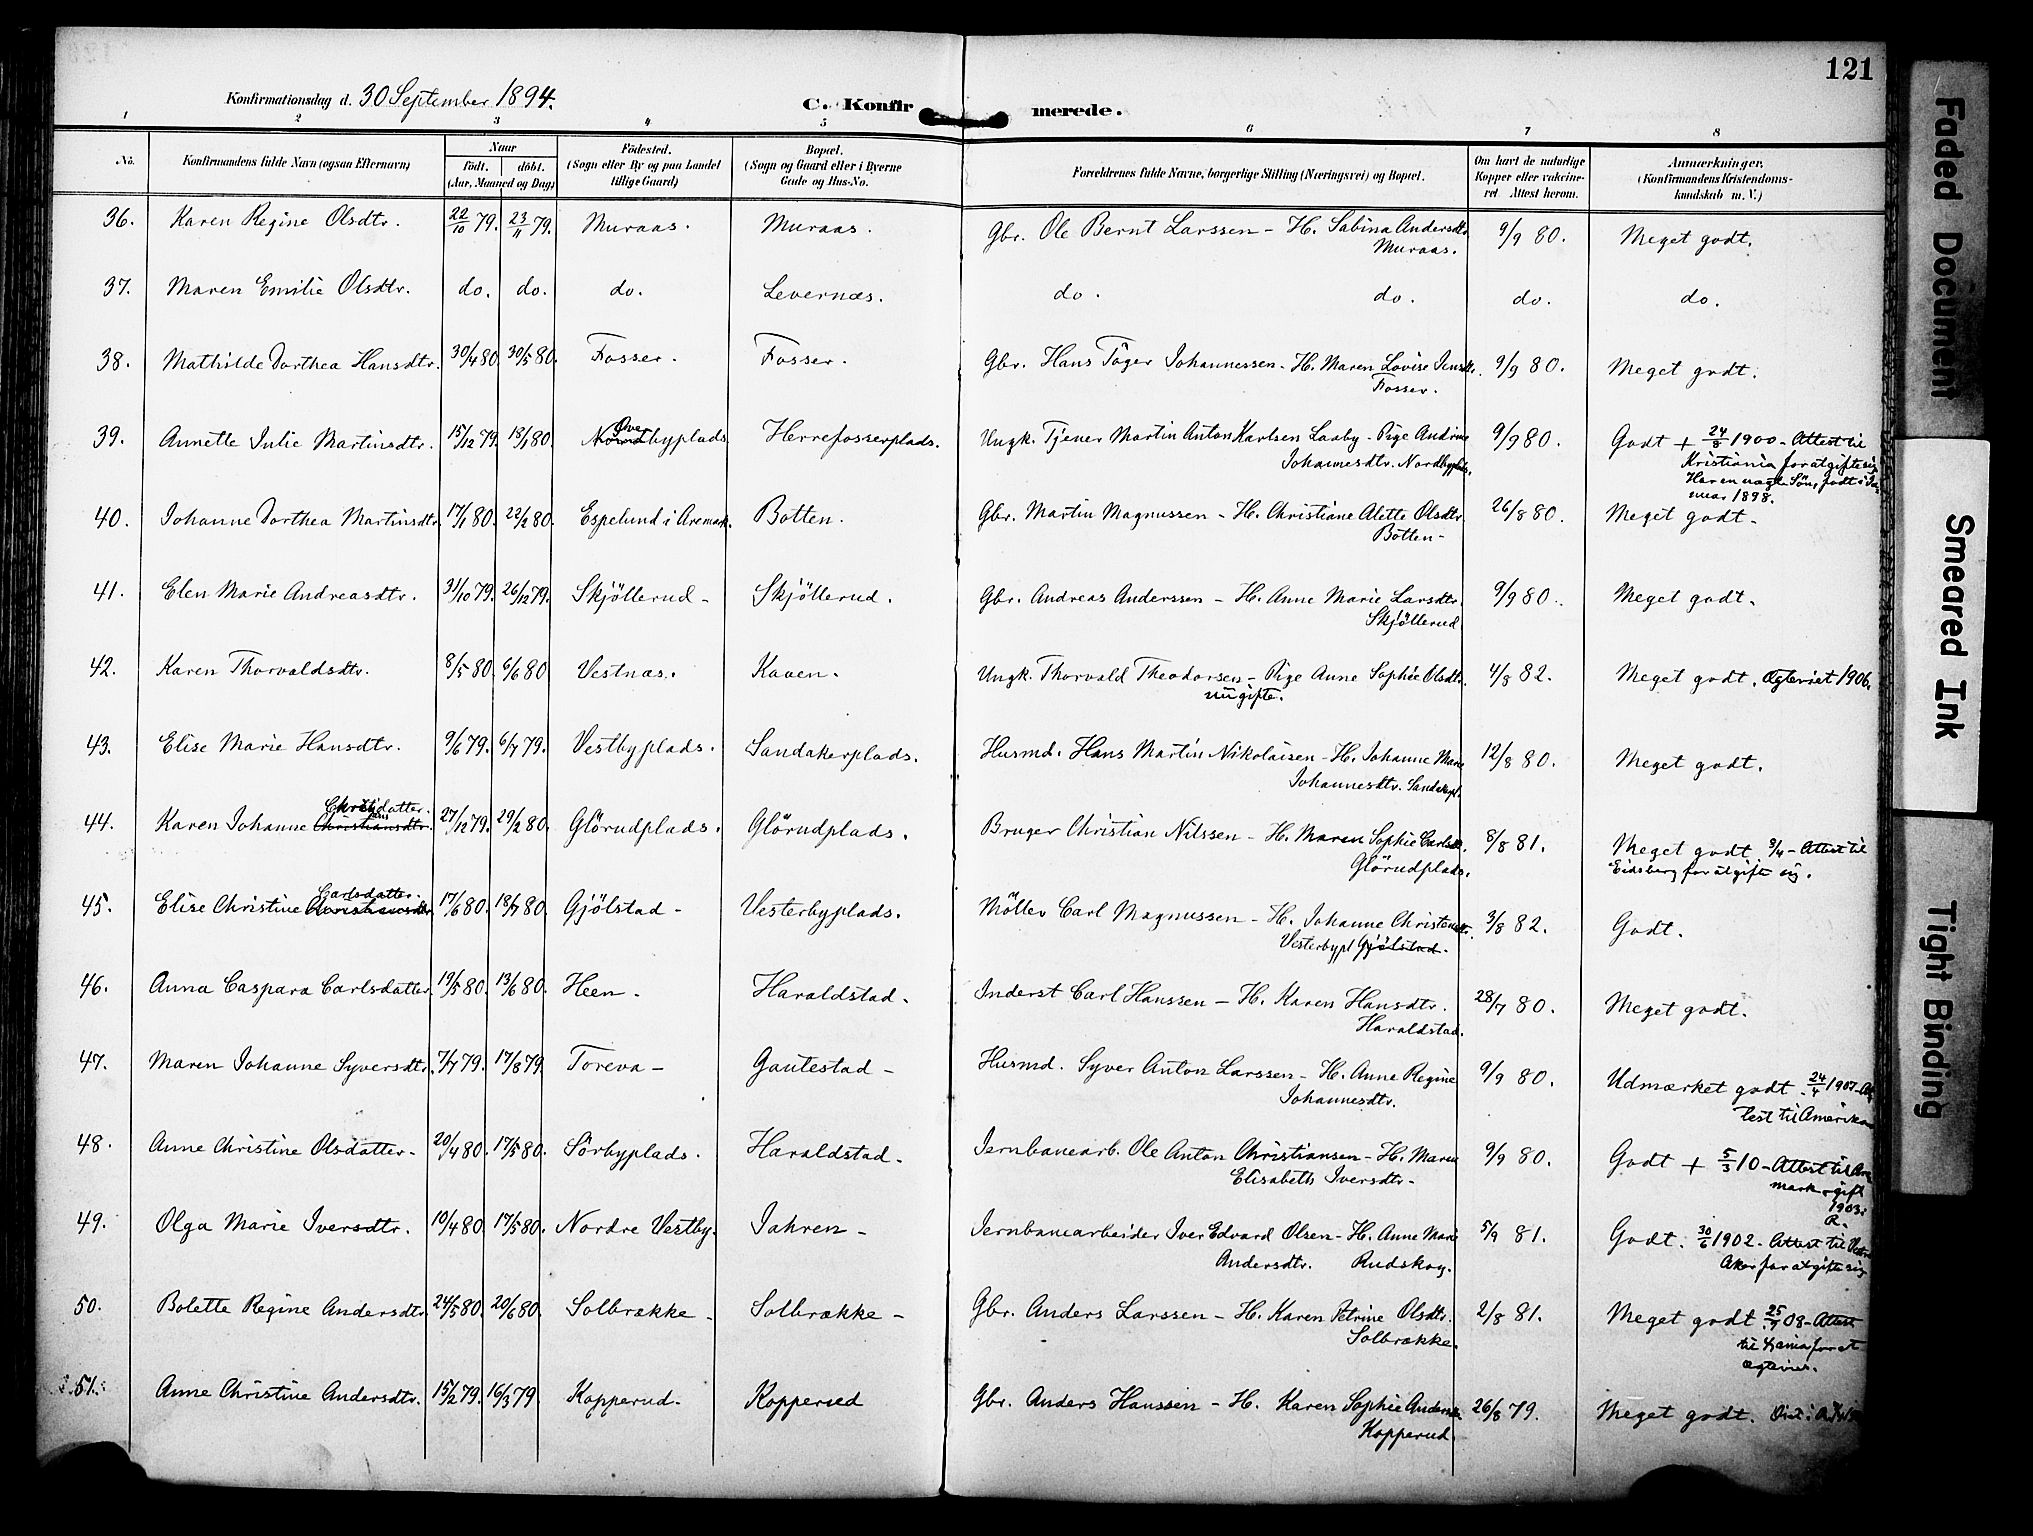 121
Konfirmationsdag d. 30 September 1894.
C. Konfirmerede.
1 2 3 4 5 6 7 8
No.
Konfirmandens fulde Navn (ogsaa Efternavn)
Naar
født. døbt.
(Aar, Maaned og Dag)
Fødested.
(Sogn eller By og paa Landet
tillige Gaard)
Bopæl.
(Sogn og Gaard eller i Byerne
Gade og Hus-No.
Forældrenes fulde Navne, borgerlige Stilling (Næringsvei) og Bopæl.
Om havt de naturlige
Kopper eller vakcine-
ret Attest herom.
Anmærkninger.
(Konfirmandens Kristendoms-
kundskab m. V.)
36. Karen Regine Olsdtr. 22/10 79. 23/11 79. Muraas. Muraas. Gbr. Ole Bernt Larssen - H. Sabina Andersdtr. 9/9 80. Meget godt.
Muraas.
37. Maren Emilie Olsdtr. do. do. do. Levernæs. do. do. do. do.
38. Mathilde Dorthea Hansdtr. 30/4 80. 30/5 80. Fosser. Fosser. Gbr. Hans Töger Johannessen - H. Maren Lovise Jensdtr. 9/9 80. Meget godt.
Fosser.
39. Annette Julie Martinsdtr. 15/12 79. 18/1 80. Nordbyplads Herrefosserplads. Ungk. Tjener Martin Anton Karlsen Laaby - Pige Andrine 9/9 80. Godt + 24/8 1900 - Attest til
Johannesdtr. Nordbyplds. Kristiania for at gifte sig
Har en uægte Søn, født i Ja-
nuar 1898.
40. Johanne Dorthea Martinsdtr. 17/1 80. 22/2 80. Espelund i Aremark. Botten. Gbr. Martin Magnussen - H. Christiane Alette Olsdtr. 26/8 80. Meget godt -
Botten -
41. Elen Marie Andreasdtr. 31/10 79. 26/12 79. Skjöllerud - Skjöllerud. Gbr. Andreas Anderssen - H. Anne Marie Larsdtr. 9/9 80. Meget godt.
Skjöllerud
42. Karen Thorvaldsdtr. 8/5 80. 6/6 80 Vestnæs. Kaaen. Ungk. Thorvald Theodorsen - Pige Anne Sophie Olsdtr. 4/8 82. Meget godt. Ægteviet 1906.
nu gifte.
43. Elise Marie Hansdtr. 9/6 79. 6/7 79. Vestbyplads. Sandakerplads. Husmd. Hans Martin Nikolaisen - H. Johanne Marie 12/8 80. Meget godt.
Johannesdtr. Sandakpl.
44. Karen Johanne Christiansdtr. 27/12 79. 29/2 80. Glörudplads. Glörudplads. Bruger Christian Nilssen - H. Maren Sophie Carlsdtr. 8/8 81. Meget godt 3/4 - Attest til
Glörudplads. Eidsberg for at gifte sig.
Carlsdatter.
45. Elise Christine Christiansdtr. 17/6 80. 18/7 80. Gjölstad - Vesterbyplads. Möller Carl Magnussen - H. Johanne Christensdtr. 3/8 82. Godt.
Vesterbypl Gjölstad.
46. Anna Caspara Carlsdatter. 19/5 80. 13/6 80. Heen. Haraldstad. Inderst Carl Hanssen - H. Karen Hansdtr. 28/7 80. Meget godt.
Haraldstad.
47. Maren Johanne Syversdtr. 7/7 79. 17/8 79. Toreva - Gautestad - Husmd. Syver Anton Larssen - H. Anne Regine 9/9 80. Udmærket godt. 24/4 1907 - At-
Johannesdtr. test til Amerika
48. Anne Christine Olsdatter - 20/4 80. 17/5 80. Sörbyplads. Haraldstad. Jernbanearb. Ole Anton Christiansen - H. Maren 9/9 80. Godt + 5/3 10 - Attest til Are-
Elisabeth Iversdtr - mark - gift
1903.
R.
49. Olga Marie Iversdtr. 10/4 80. 17/5 80. Nordre Vestby. Jahren - Jernbanearbeider Iver Edvard Olsen - H. Anne Marie 5/9 81. Godt. 30/6 1902. - Attest til Vestre
Andersdtr. Rudskog. Aker for at gifte sig
50. Bolette Regine Andersdtr. 24/5 80. 20/6 80. Solbrække - Solbrække - Gbr. Anders Larssen - H. Karen Petrine Olsdtr. 2/8 81. Meget godt 25/7 08 - Attest
Solbrække. til Xania for at
ægtevies.
51. Anne Christine Andersdtr. 15/2 79. 16/3 79. Kopperud. Kopperud Gbr. Anders Hanssen - H. Karen Sophie Andersdtr. 26/8 79. Meget godt.
Kopperud.
Faded Document
Smeared Ink
Tight Binding